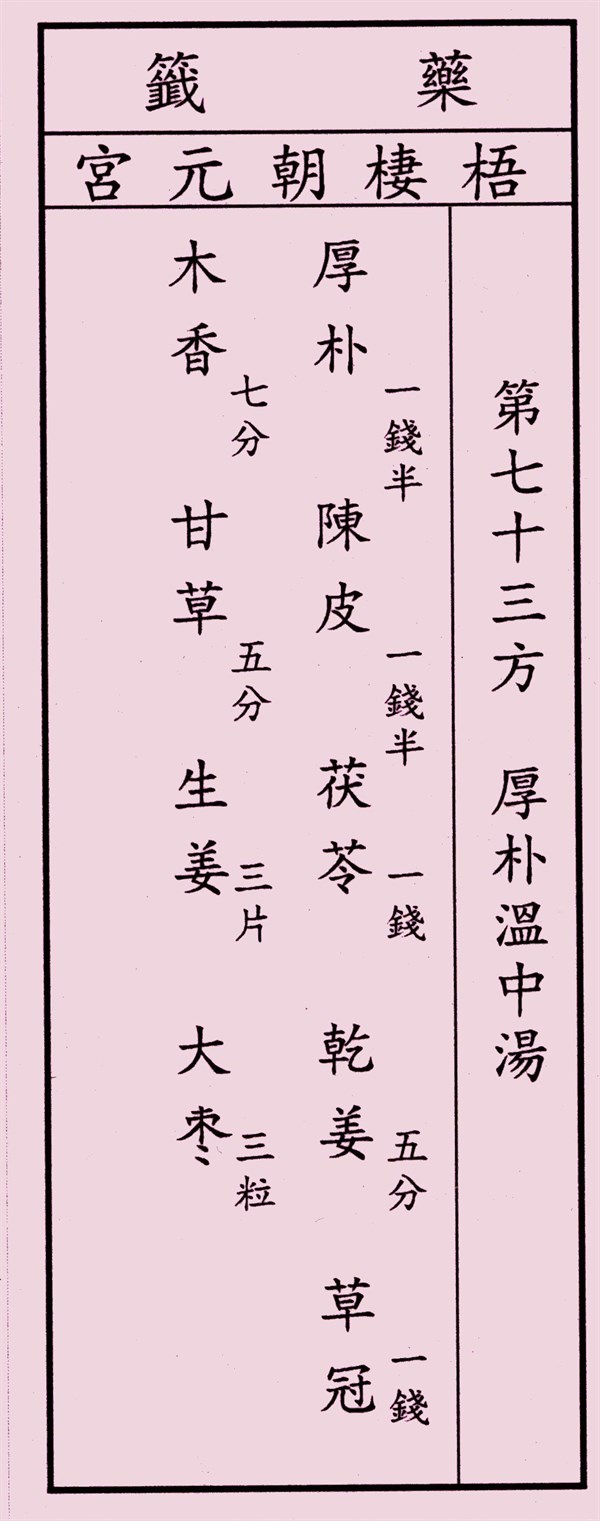 藥籤
梧棲朝元宮
第七十三方 厚朴溫中湯
厚朴 一錢半 陳皮 一錢半 茯苓 一錢 乾姜 五分 草冠 一錢
木香 七分 甘草 五分 生姜 三片 大枣 三粒